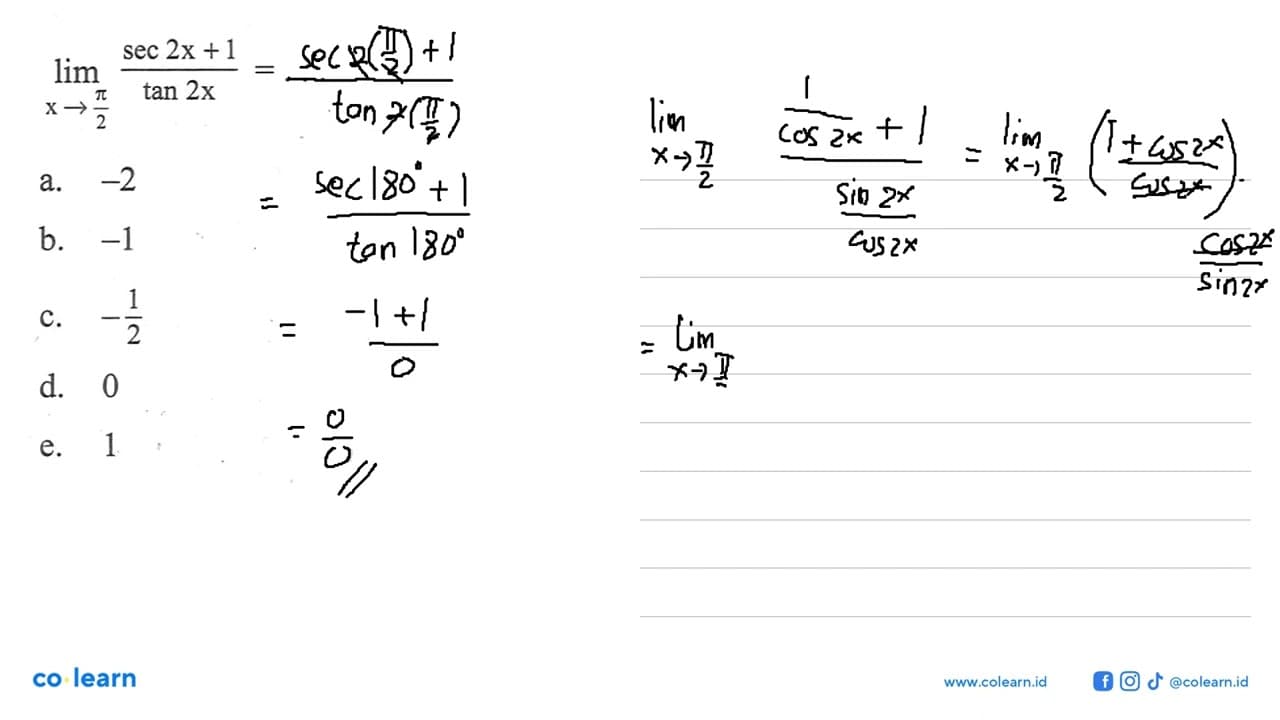 lim x→π/2 (sec 2x + 1)/(tan 2x) = (sec 2(π/2) + 1)/(tan 2(π/2))
= (sec 180° + 1)/(tan 180°)
= (-1 + 1)/0
= 0/0 //
a. −2
b. −1
c. −1/2
d. 0
e. 1
lim x→π/2 (1/(cos 2x) + 1)/((sin 2x)/(cos 2x)) = lim x→π/2 ((1 + cos 2x)/(cos 2x)) · (cos 2x)/(sin 2x)
= lim x→π
co learn
www.colearn.id
@colearn.id